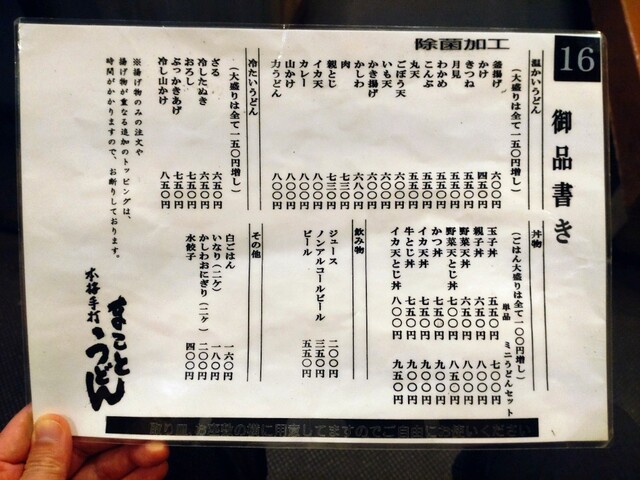 除菌加工
16
御品書き
温かいうどん
(大盛りは全て一五〇円増し)
釜揚げ 六〇〇円
かけ 四五〇円
きつね 五五〇円
月見 五五〇円
わかめ 五五〇円
こんぶ 五五〇円
丸天 五五〇円
ごぼう天 六〇〇円
いも天 六〇〇円
かき揚げ 六〇〇円
かしわ 六八〇円
肉 七三〇円
親とじ 七三〇円
イカ天 八〇〇円
カレー 八〇〇円
山かけ 八〇〇円
力うどん 八〇〇円
冷たいうどん
(大盛りは全て一五〇円増し)
ざる 六五〇円
冷したぬき 六五〇円
おろし 七五〇円
ぶっかきあげ 七五〇円
冷し山かけ 八五〇円
※揚げ物のみの注文や
揚げ物が重なる追加のトッピングは、
時間がかかりますので、お断りしております。
丼物
(ごはん大盛りは全て一〇〇円増し)
単品 ミニうどんセット
玉子丼 五五〇円 七〇〇円
親子丼 六五〇円 八〇〇円
野菜天丼 六五〇円 八〇〇円
野菜天とじ丼 七〇〇円 八五〇円
かつ丼 七五〇円 九〇〇円
イカ天丼 七五〇円 九〇〇円
牛とじ丼 七五〇円 九〇〇円
イカ天とじ丼 八〇〇円 九五〇円
飲み物
ジュース 二〇〇円
ノンアルコールビール 三五〇円
ビール 五五〇円
その他
白ごはん 一六〇円
いなり(二ケ) 一八〇円
かしわおにぎり(二ケ) 二〇〇円
水餃子 四〇〇円
本格手打
まことうどん
取り皿、お座敷の横に用意してますのでご自由にお使いください